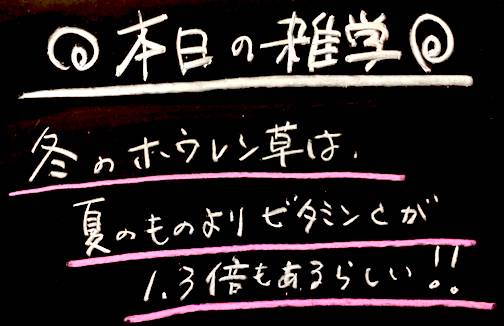 本日の雑学
冬のホウレン草は、
夏のものよりビタミンCが
1.3倍もあるらしい!!